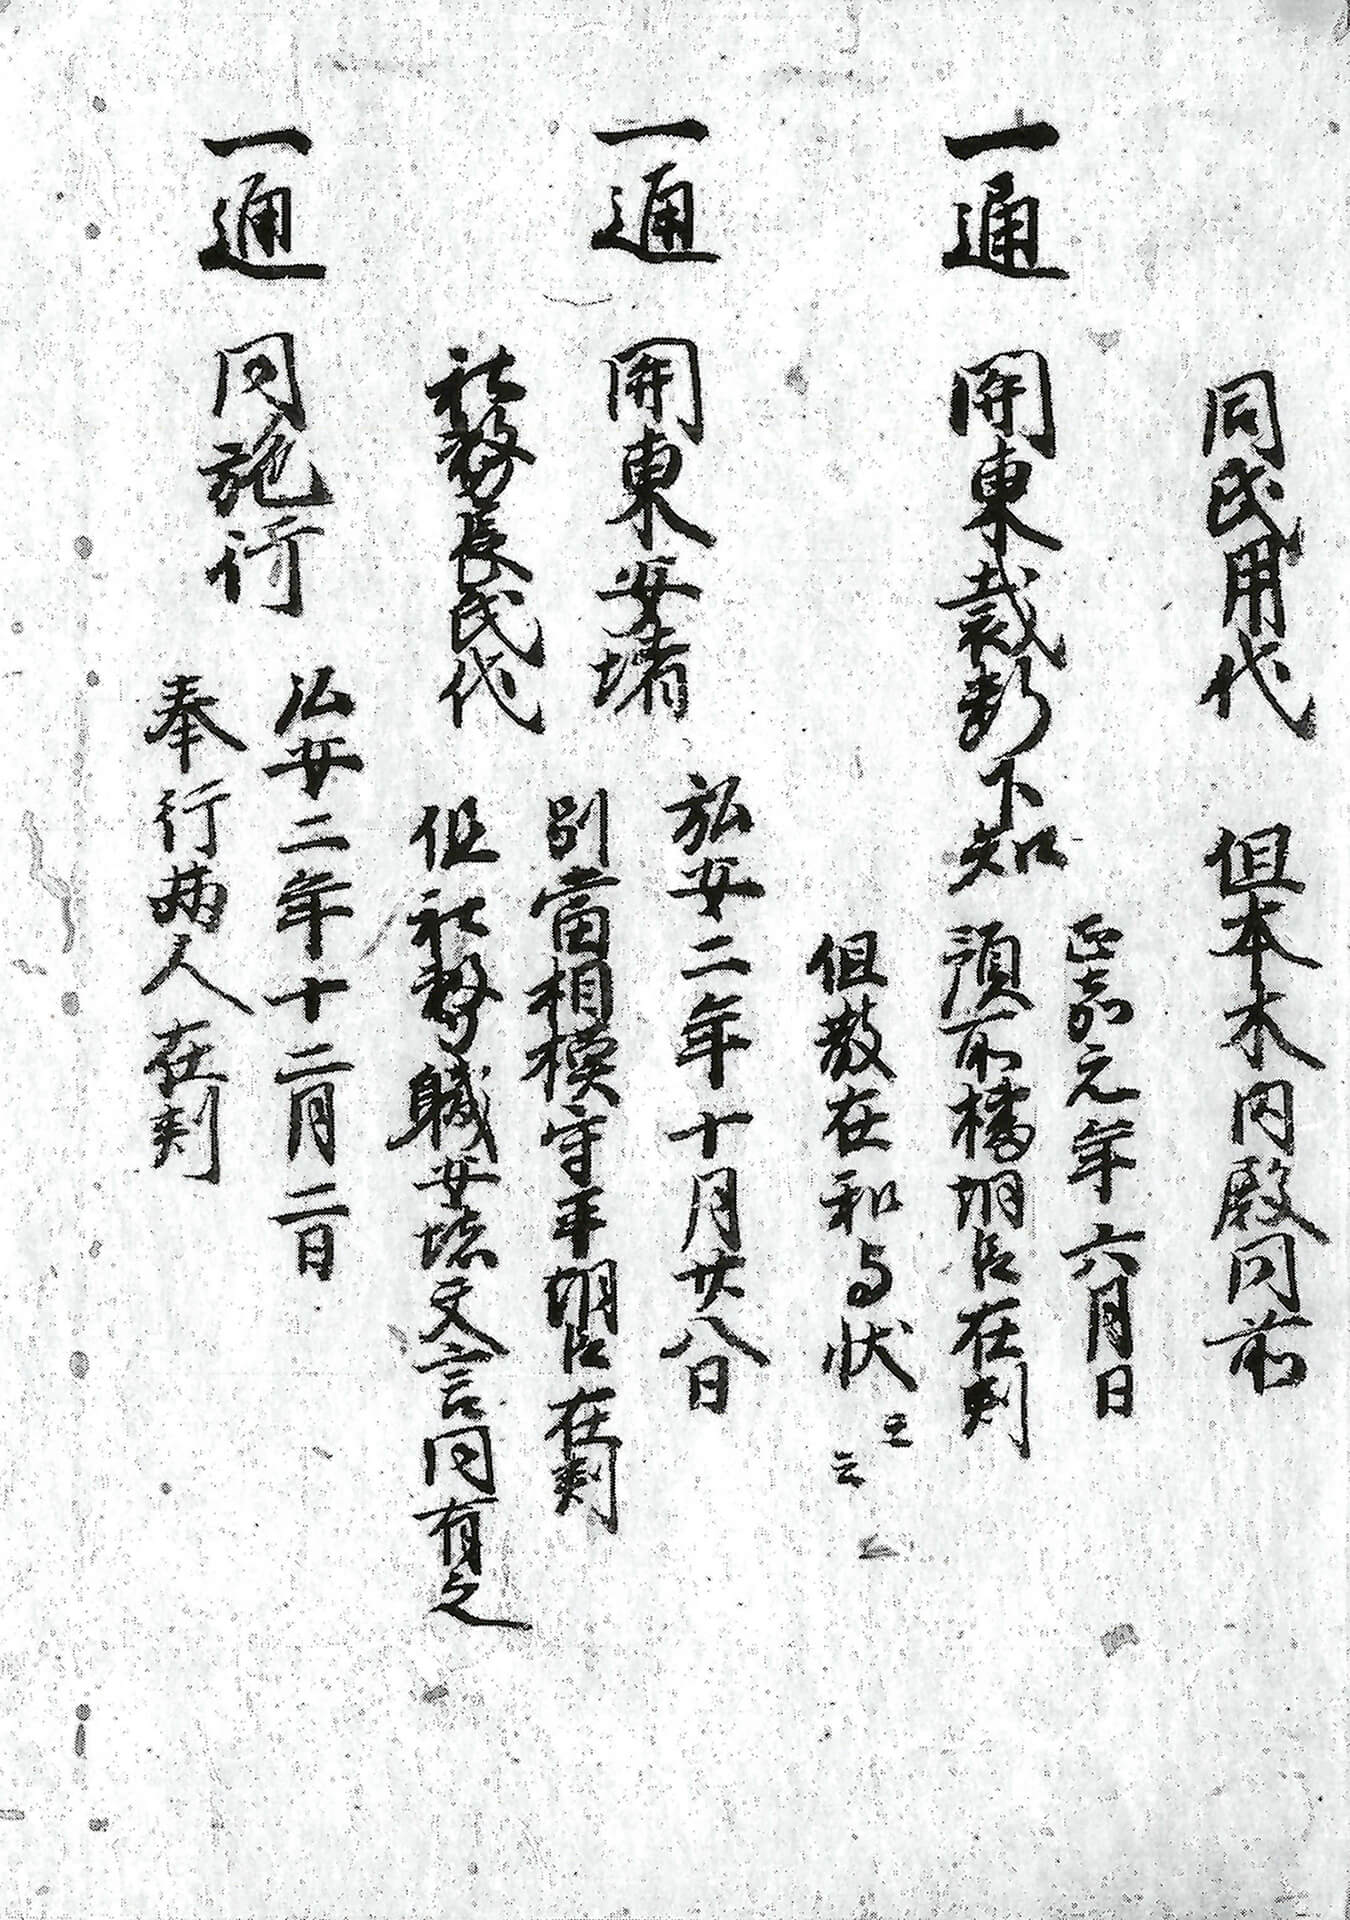 同氏用代　但本木内殿同前
正嘉元年六月日
一通　関東裁断下知　預所橘朝臣在判
但散在和与状云云
弘安二年十月廿八日
一通　関東安堵　別当相模守平朝臣在判
社務長氏代　但社務職安堵文言同有之
弘安二年十二月二日
一通　同施行
奉行両人在判